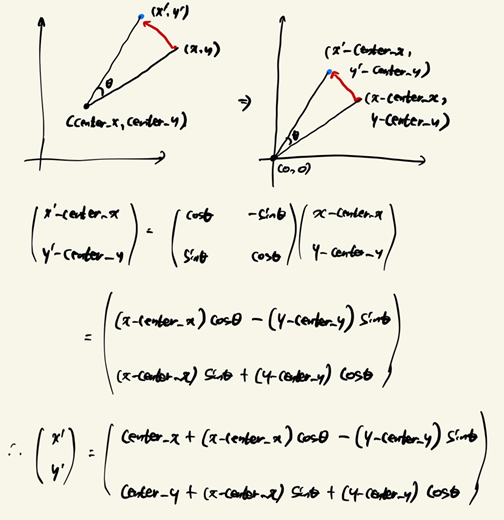 (x', y')
(x, y)
θ
(center_x, center_y)
⇒
(x'-center_x,
y'-center_y)
(x-center_x,
y-center_y)
θ
(0,0)
(x'-center_x) = (cosθ -sinθ)(x-center_x)
(y'-center_y) (sinθ cosθ)(y-center_y)
= ((x-center_x) cosθ - (y-center_y) sinθ
(x-center_x) sinθ + (y-center_y) cosθ)
∴ (x') = (center_x + (x-center_x) cosθ - (y-center_y) sinθ
(y') center_y + (x-center_x) sinθ + (y-center_y) cosθ)